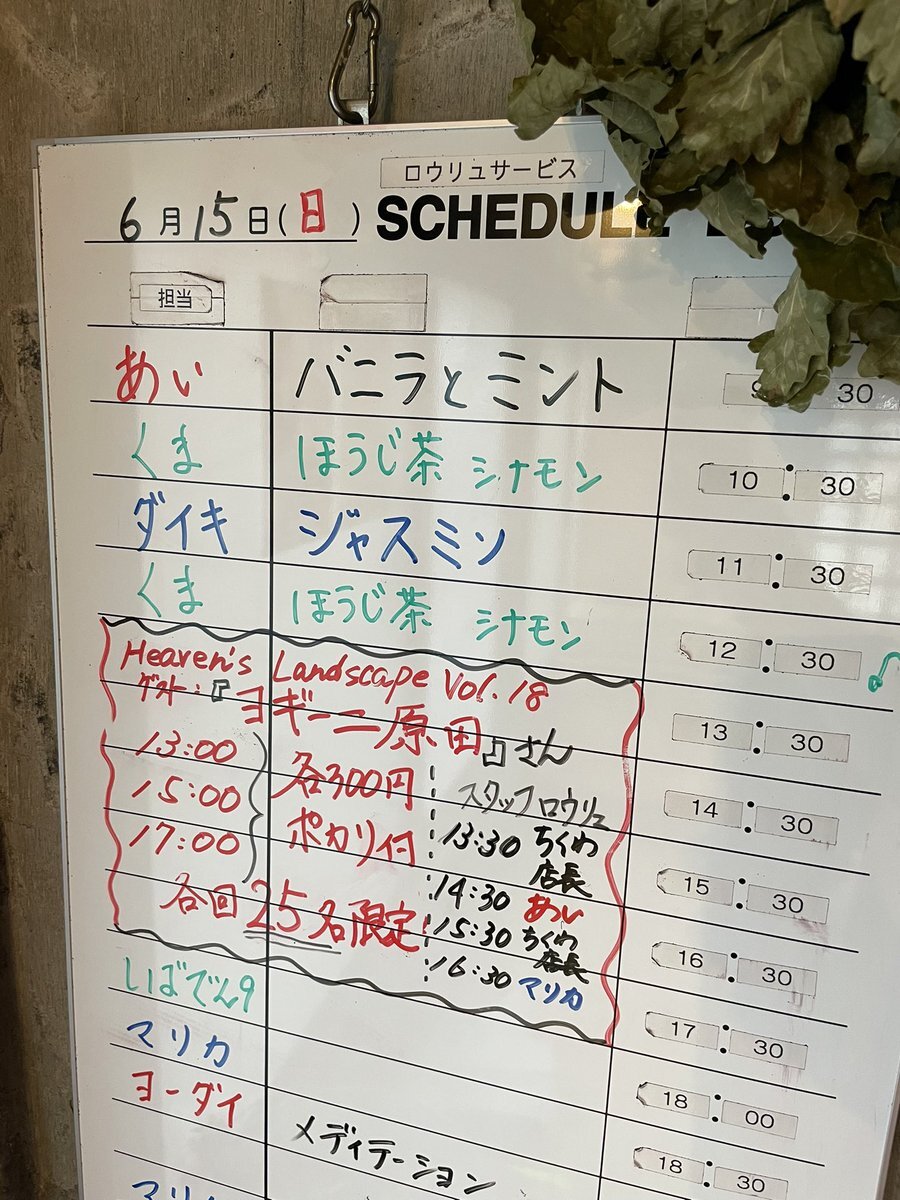 ロウリュサービス
6月15日(日) SCHEDULE
担当
あい バニラとミント 30
くま ほうじ茶 シナモン 10:30
ダイキ ジャスミン 11:30
くま ほうじ茶 シナモン 12:30
Heaven's Landscape Vol.18
ゲスト:『ヨギーニ原田』さん
13:30
13:00 各300円 スタッフロウリュ
14:30
15:00 ポカリ付 13:30 ちくわ店長
17:00 14:30 あい
15:30
各回25名限定! 15:30 ちくわ店長
16:30 マリカ
16:30
いばでん9 17:30
マリカ 18:00
ヨーダイ メディテーション 18:30